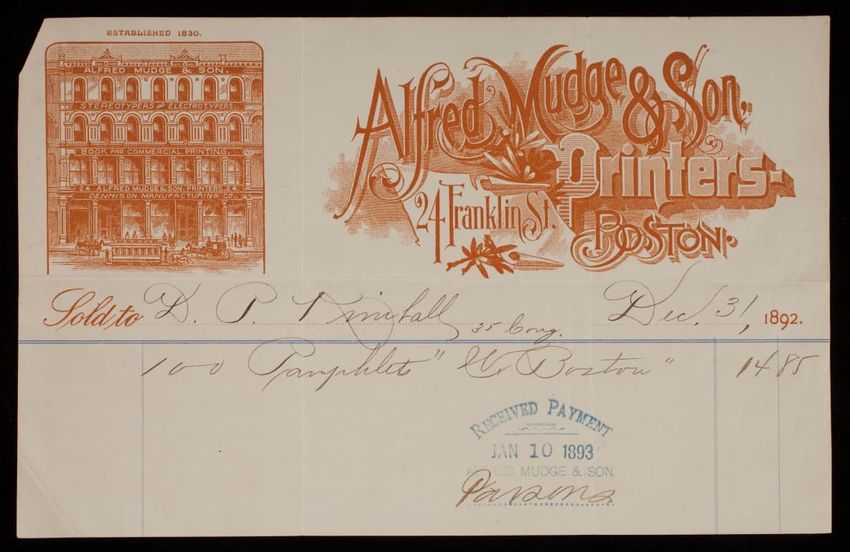 ESTABLISHED 1830.
ALFRED MUDGE & SON.
STEREOTYPERS AND ELECTROTYPERS.
BOOK AND COMMERCIAL PRINTING.
24 ALFRED MUDGE & SON. PRINTERS. 24
DENNISON MANUFACTURING CO.
Alfred Mudge & Son,
Printers
24 Franklin St.
BOSTON.
Sold to D. P. Kimball 35 Cong. Dec. 31, 1892.
100 Pamphlets "W. Boston" 14 85
RECEIVED PAYMENT
JAN 10 1893
ALFRED MUDGE & SON.
Parsons